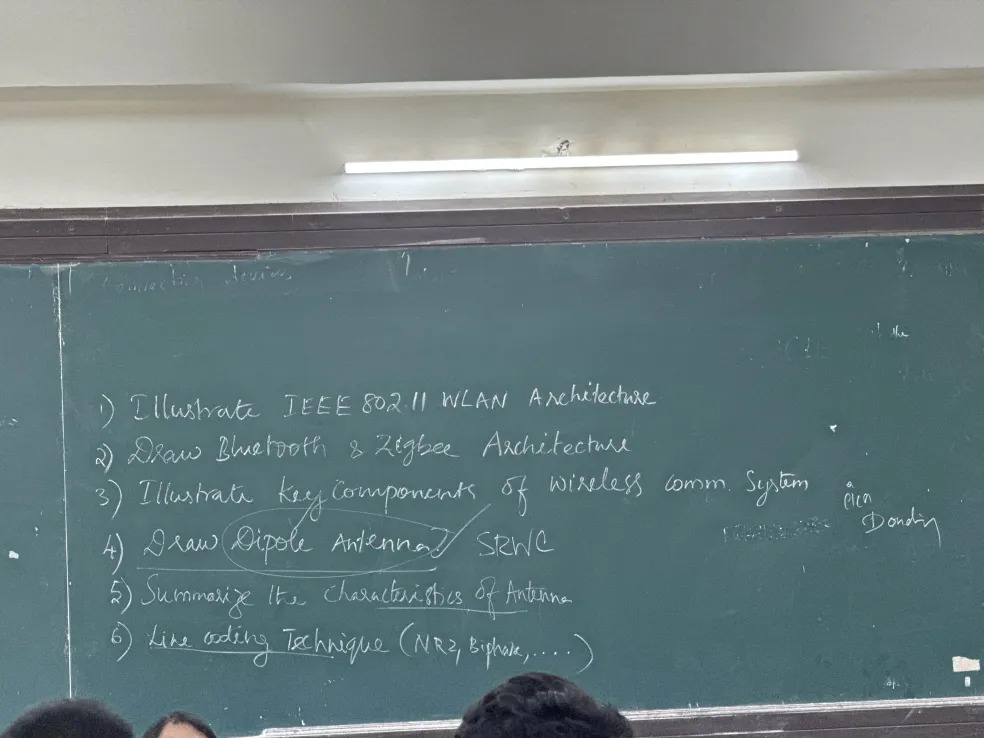 Connecting devices
1) Illustrate IEEE 802.11 WLAN Architecture
2) Draw Bluetooth & Zigbee Architecture
3) Illustrate Key Components of wireless comm. System
4) Draw Dipole Antenna SRWC
5) Summarize the characteristics of Antenna
6) Line coding Technique (NRZ, Biphase, ....)
the